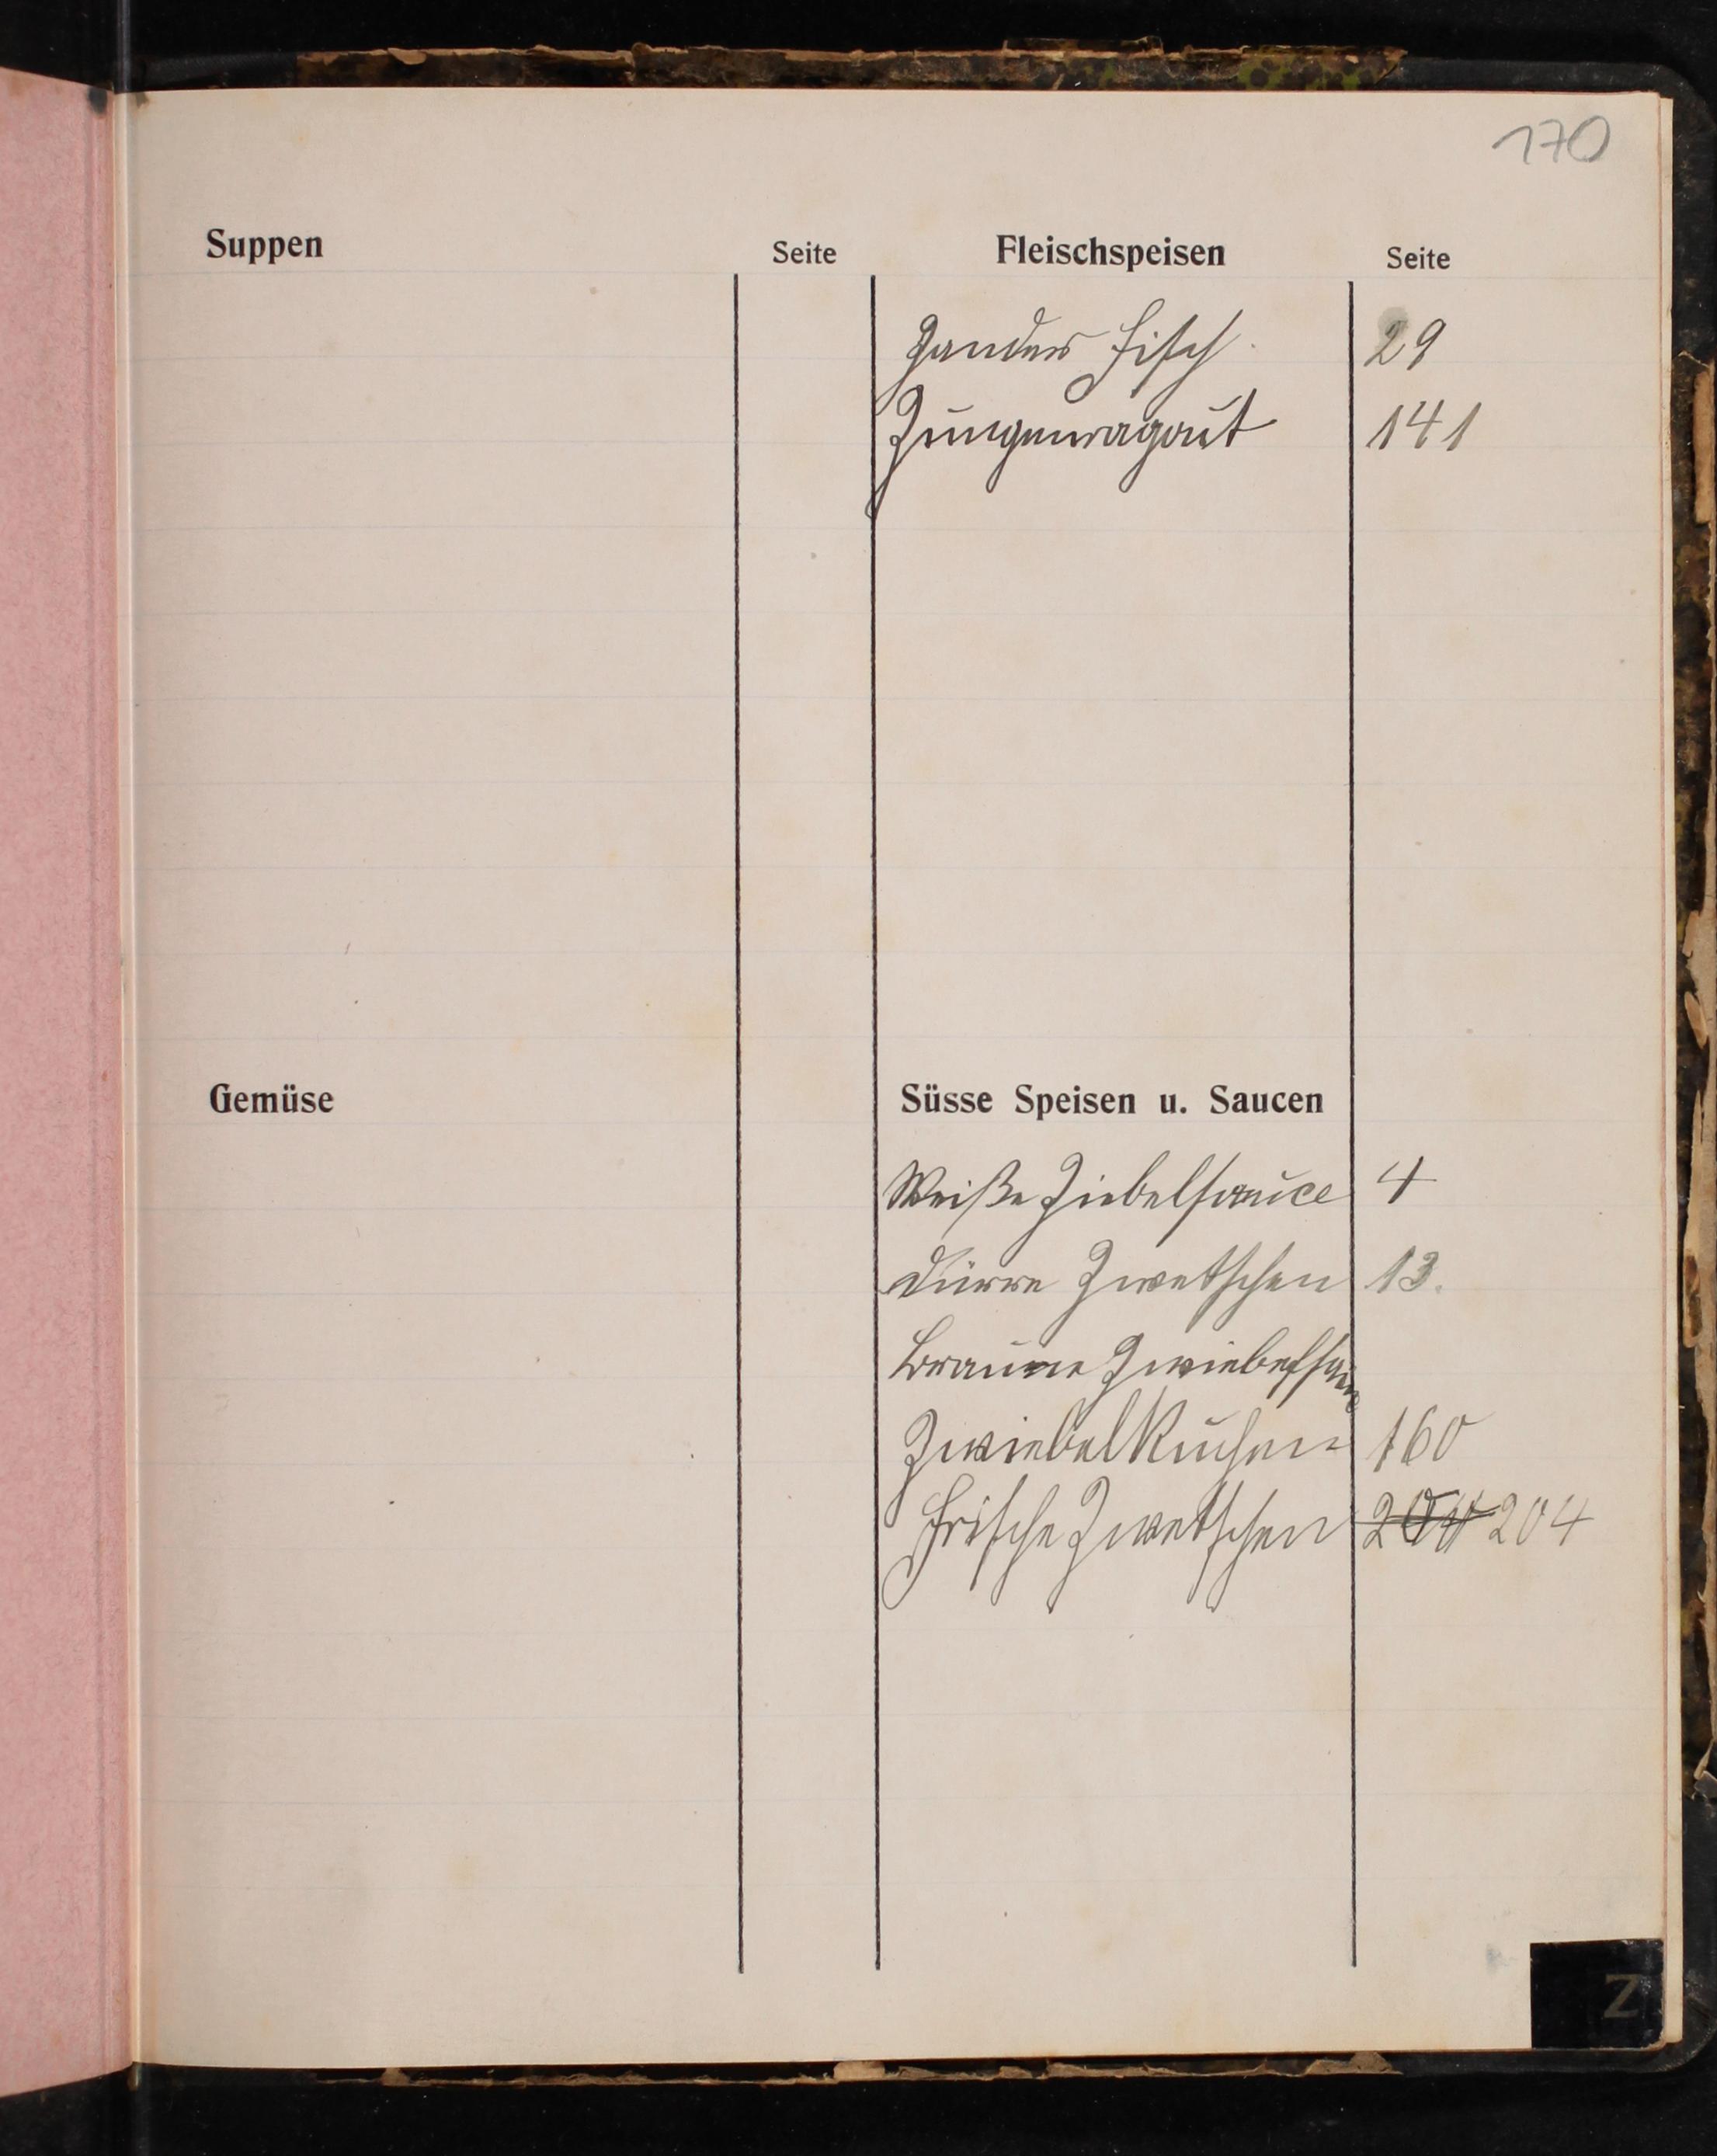 170
Suppen Seite Fleischspeisen Seite
Zander Fisch. 29
Zungenragout 141
Gemüse Süsse Speisen u. Saucen
Weiße Ziebelsauce 4
Dürre Zwetschen 13.
Braune Zwiebelsauce
Zwiebelkuchen 160
Frische Zwetschen 204
Z